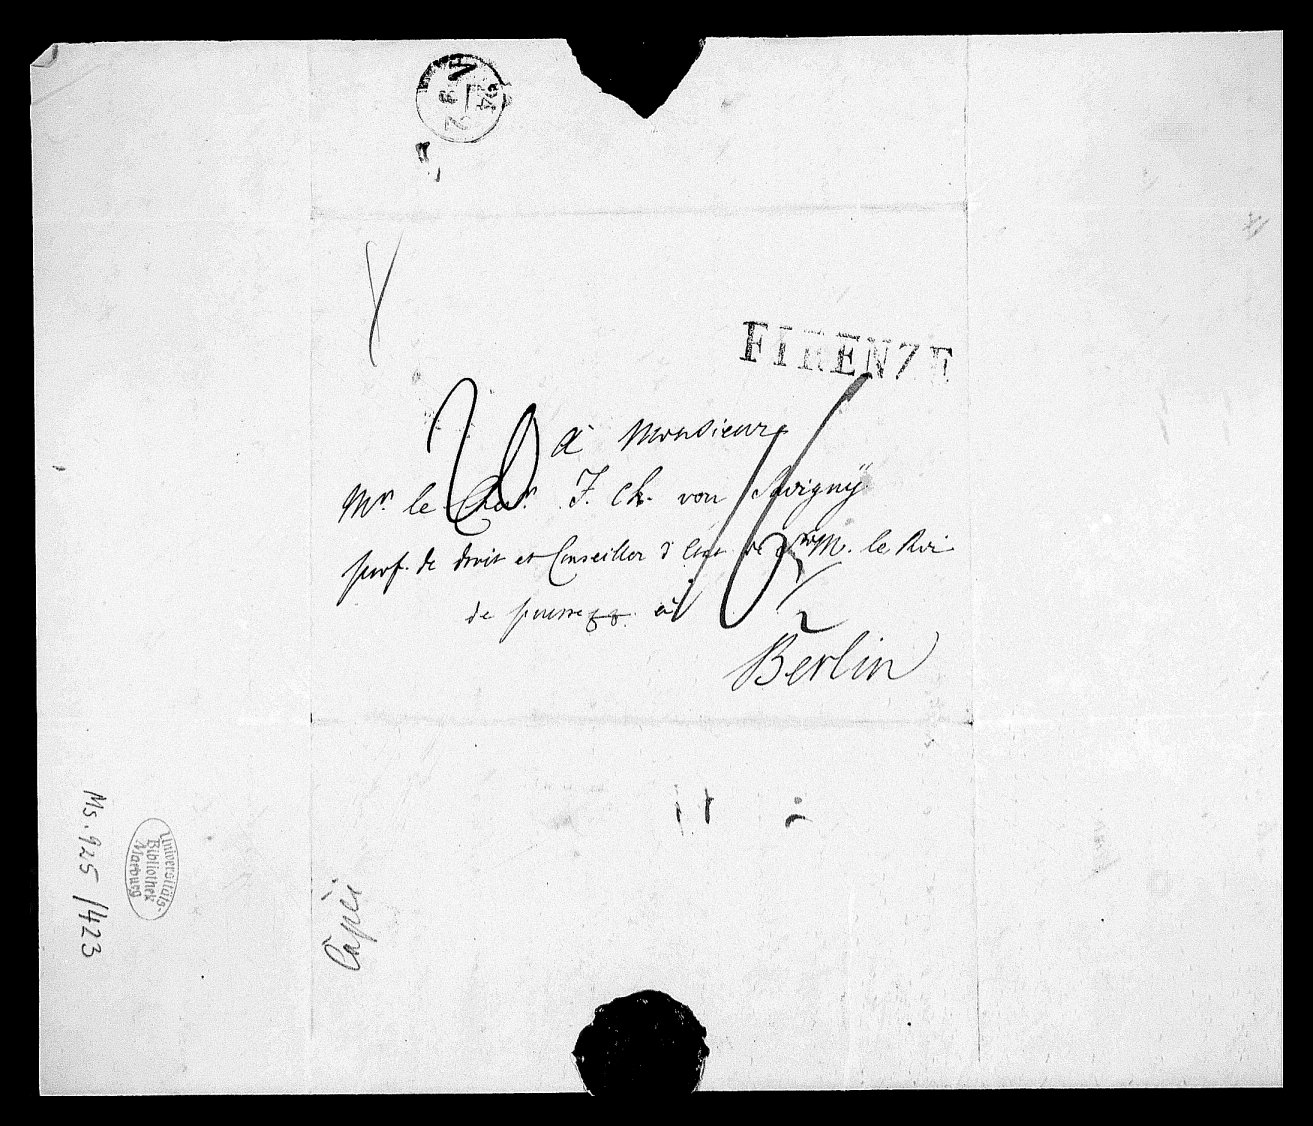 N
24
FIRENZE
à Monsieur
Mr. le Chev. F. Ch. von Savignÿ
prof. de droit et Conseiller d'Etat de S. M. le Roi
de prusse à
Berlin
Capei
Universitäts-
Bibliothek
Marburg
Ms. 925/423